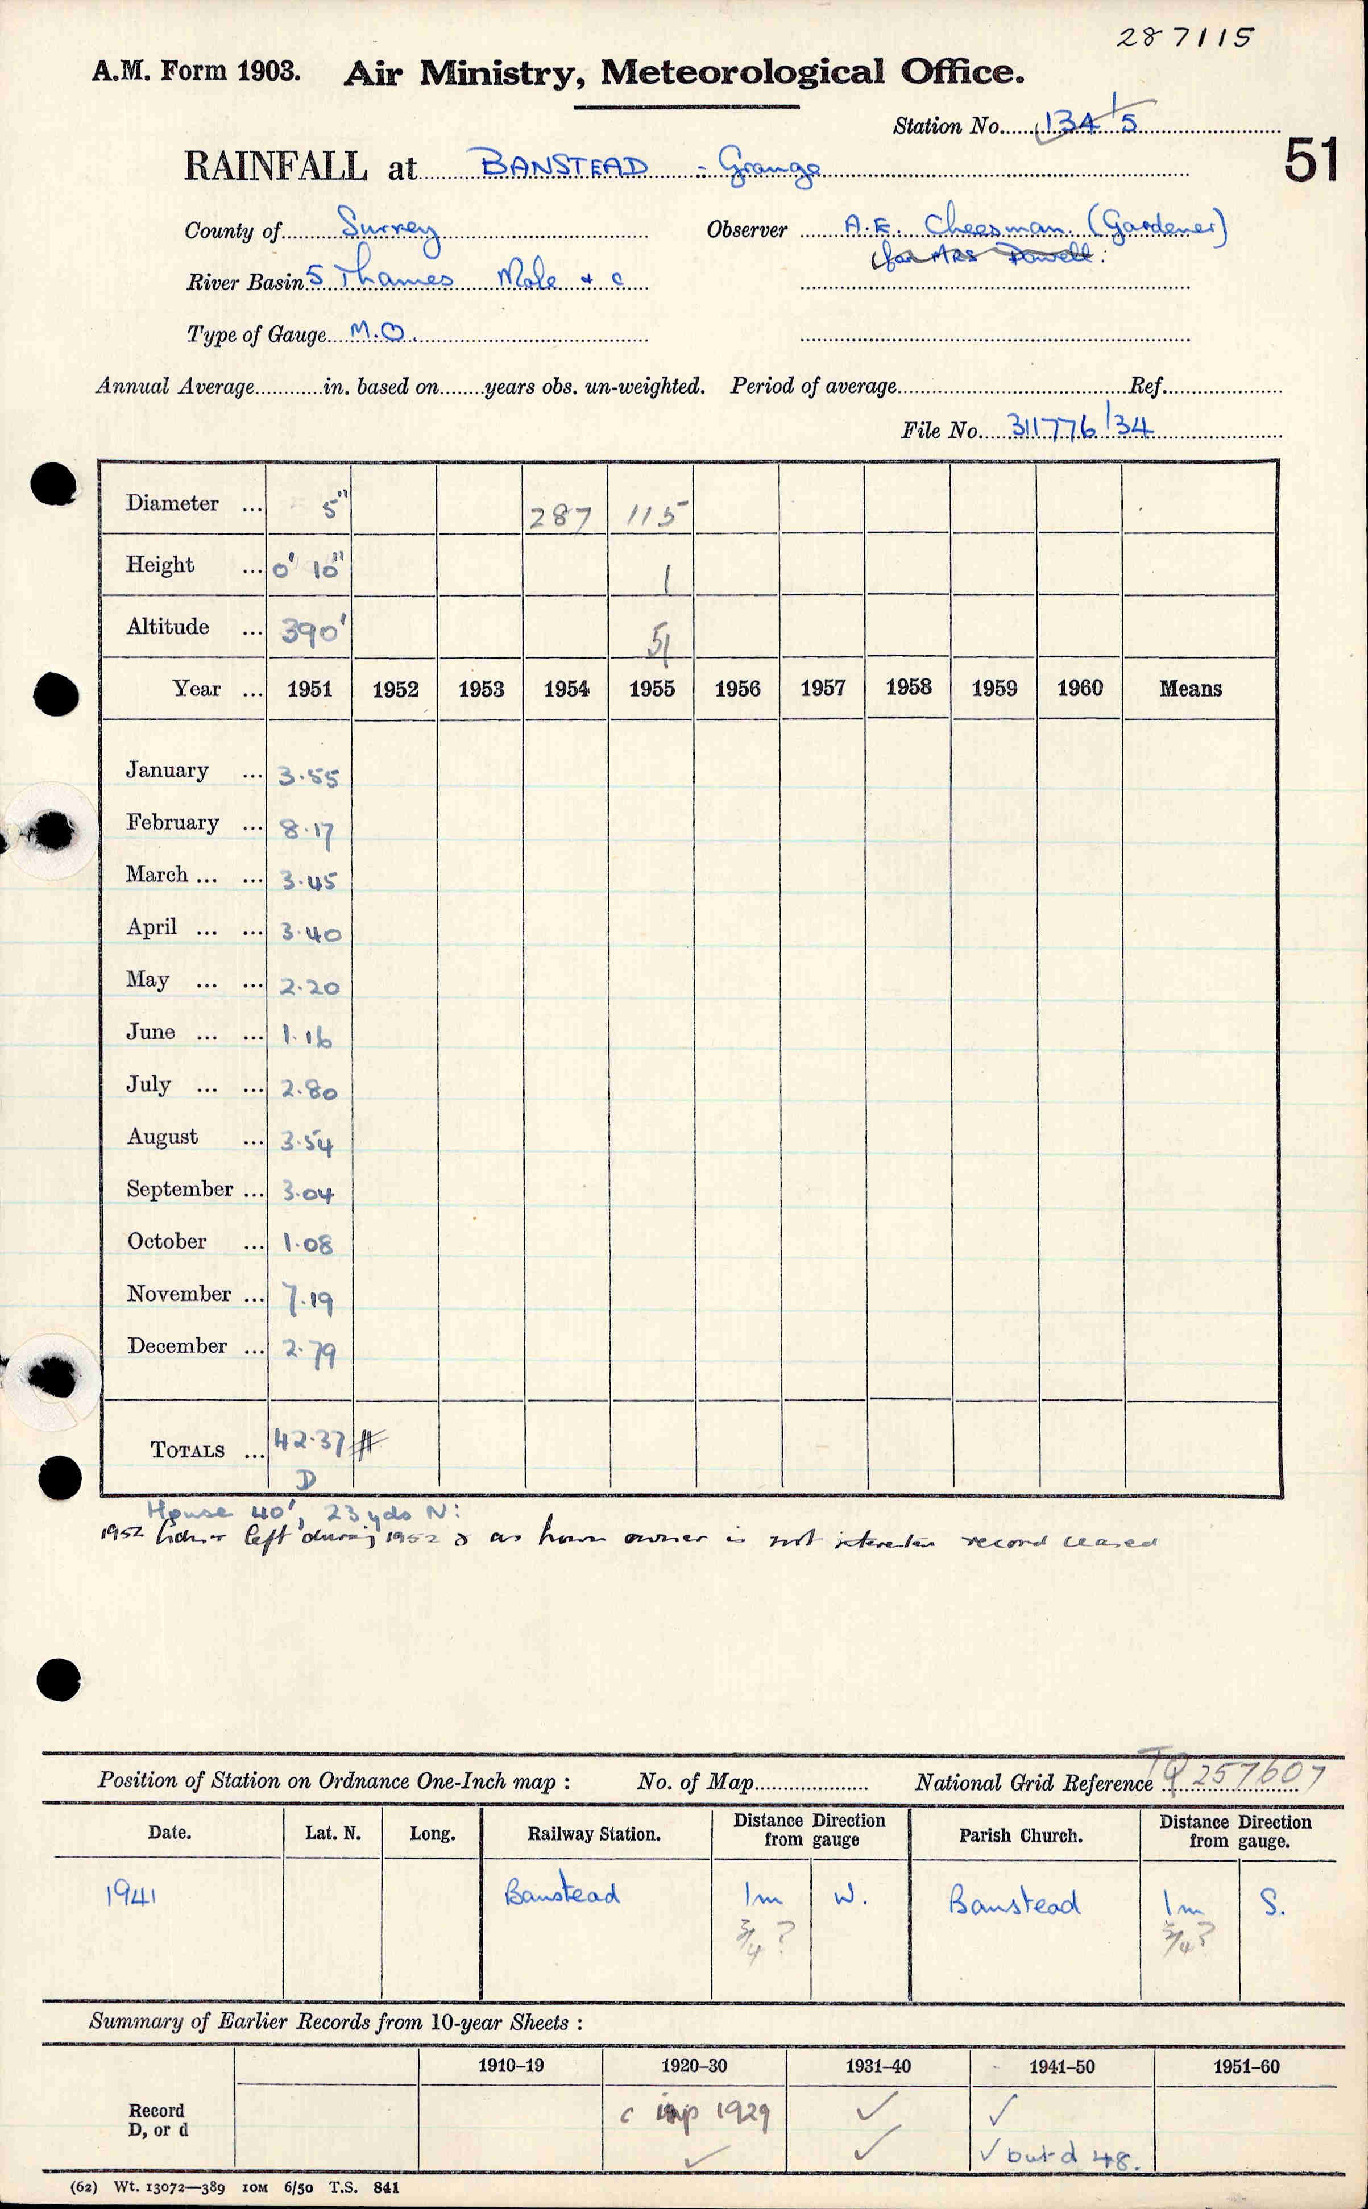 287115
A.M. Form 1903. Air Ministry, Meteorological Office.
Station No. 134/5
51
RAINFALL at BANSTEAD - Grange
County of Surrey Observer A.E. Cheesman (Gardener)
(for Mrs Powell.
River Basin 5 Thames Mole + c
Type of Gauge M.O.
Annual Average in. based on years obs. un-weighted. Period of average Ref.
File No. 311776/34
Diameter ... 5" 287 115
Height ... 0' 10" 1
Altitude ... 390' 51
Year ... 1951 1952 1953 1954 1955 1956 1957 1958 1959 1960 Means
January ... 3.55
February ... 8.17
March ... ... 3.45
April ... ... 3.40
May ... ... 2.20
June ... ... 1.16
July ... ... 2.80
August ... 3.54
September ... 3.04
October ... 1.08
November ... 7.19
December ... 2.79
TOTALS ... 42.37 #
D
House 40', 23 yds N:
1952 left during 1952 & as owner is not record ceased
Position of Station on Ordnance One-Inch map : No. of Map National Grid Reference TQ 257607
Date. Lat. N. Long. Railway Station. Distance Direction from gauge Parish Church. Distance Direction from gauge.
1941 Banstead 1m W. Banstead 1m S.
3/4 ? 3/4 ?
Summary of Earlier Records from 10-year Sheets :
1910-19 1920-30 1931-40 1941-50 1951-60
Record D, or d c inp 1929 ✓ ✓
✓ ✓ ✓ but d 48.
(62) Wt. 13072—389 10M 6/50 T.S. 841